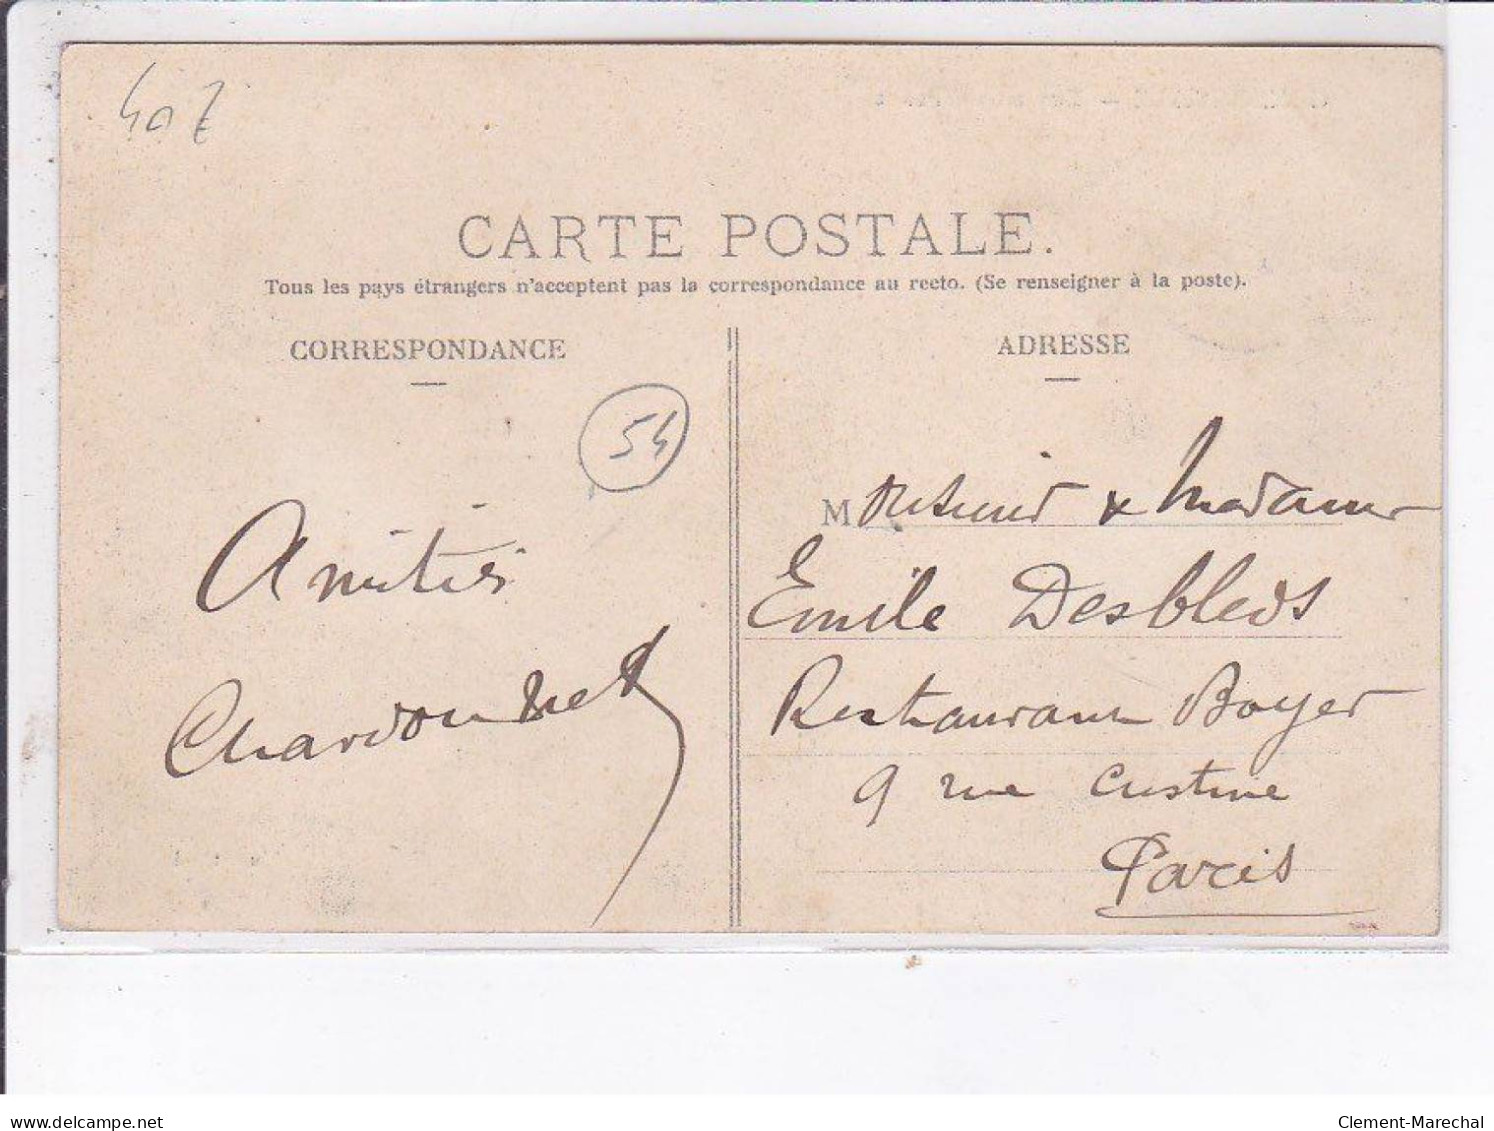 407
CARTE POSTALE.
Tous les pays étrangers n'acceptent pas la correspondance au recto. (Se renseigner à la poste).
CORRESPONDANCE
ADRESSE
54
Amitiés
Chardonnet
Monsieur & Madame
Emile Desbleds
Restaurant Boyer
9 rue Custine
Paris
delcampe.net
Clement-Marechal